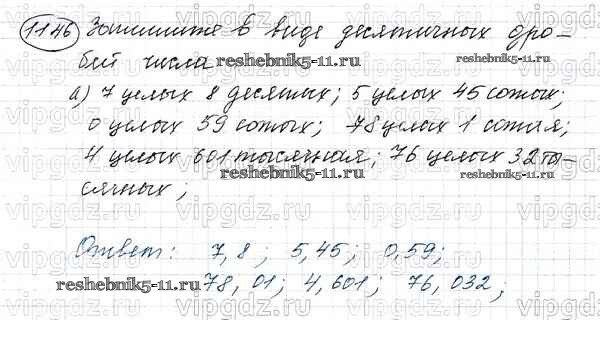 1146 Запишите в виде десятичных дро-
бей числа
а) 7 целых 8 десятых; 5 целых 45 сотых;
0 целых 59 сотых; 78 целых 1 сотая;
4 целых 601 тысячная; 76 целых 32 ты-
сячных;
Ответ: 7,8; 5,45; 0,59;
78,01; 4,601; 76,032;
reshebnik5-11.ru
reshebnik5-11.ru
reshebnik5-11.ru
reshebnik5-11.ru
vipgdz.ru